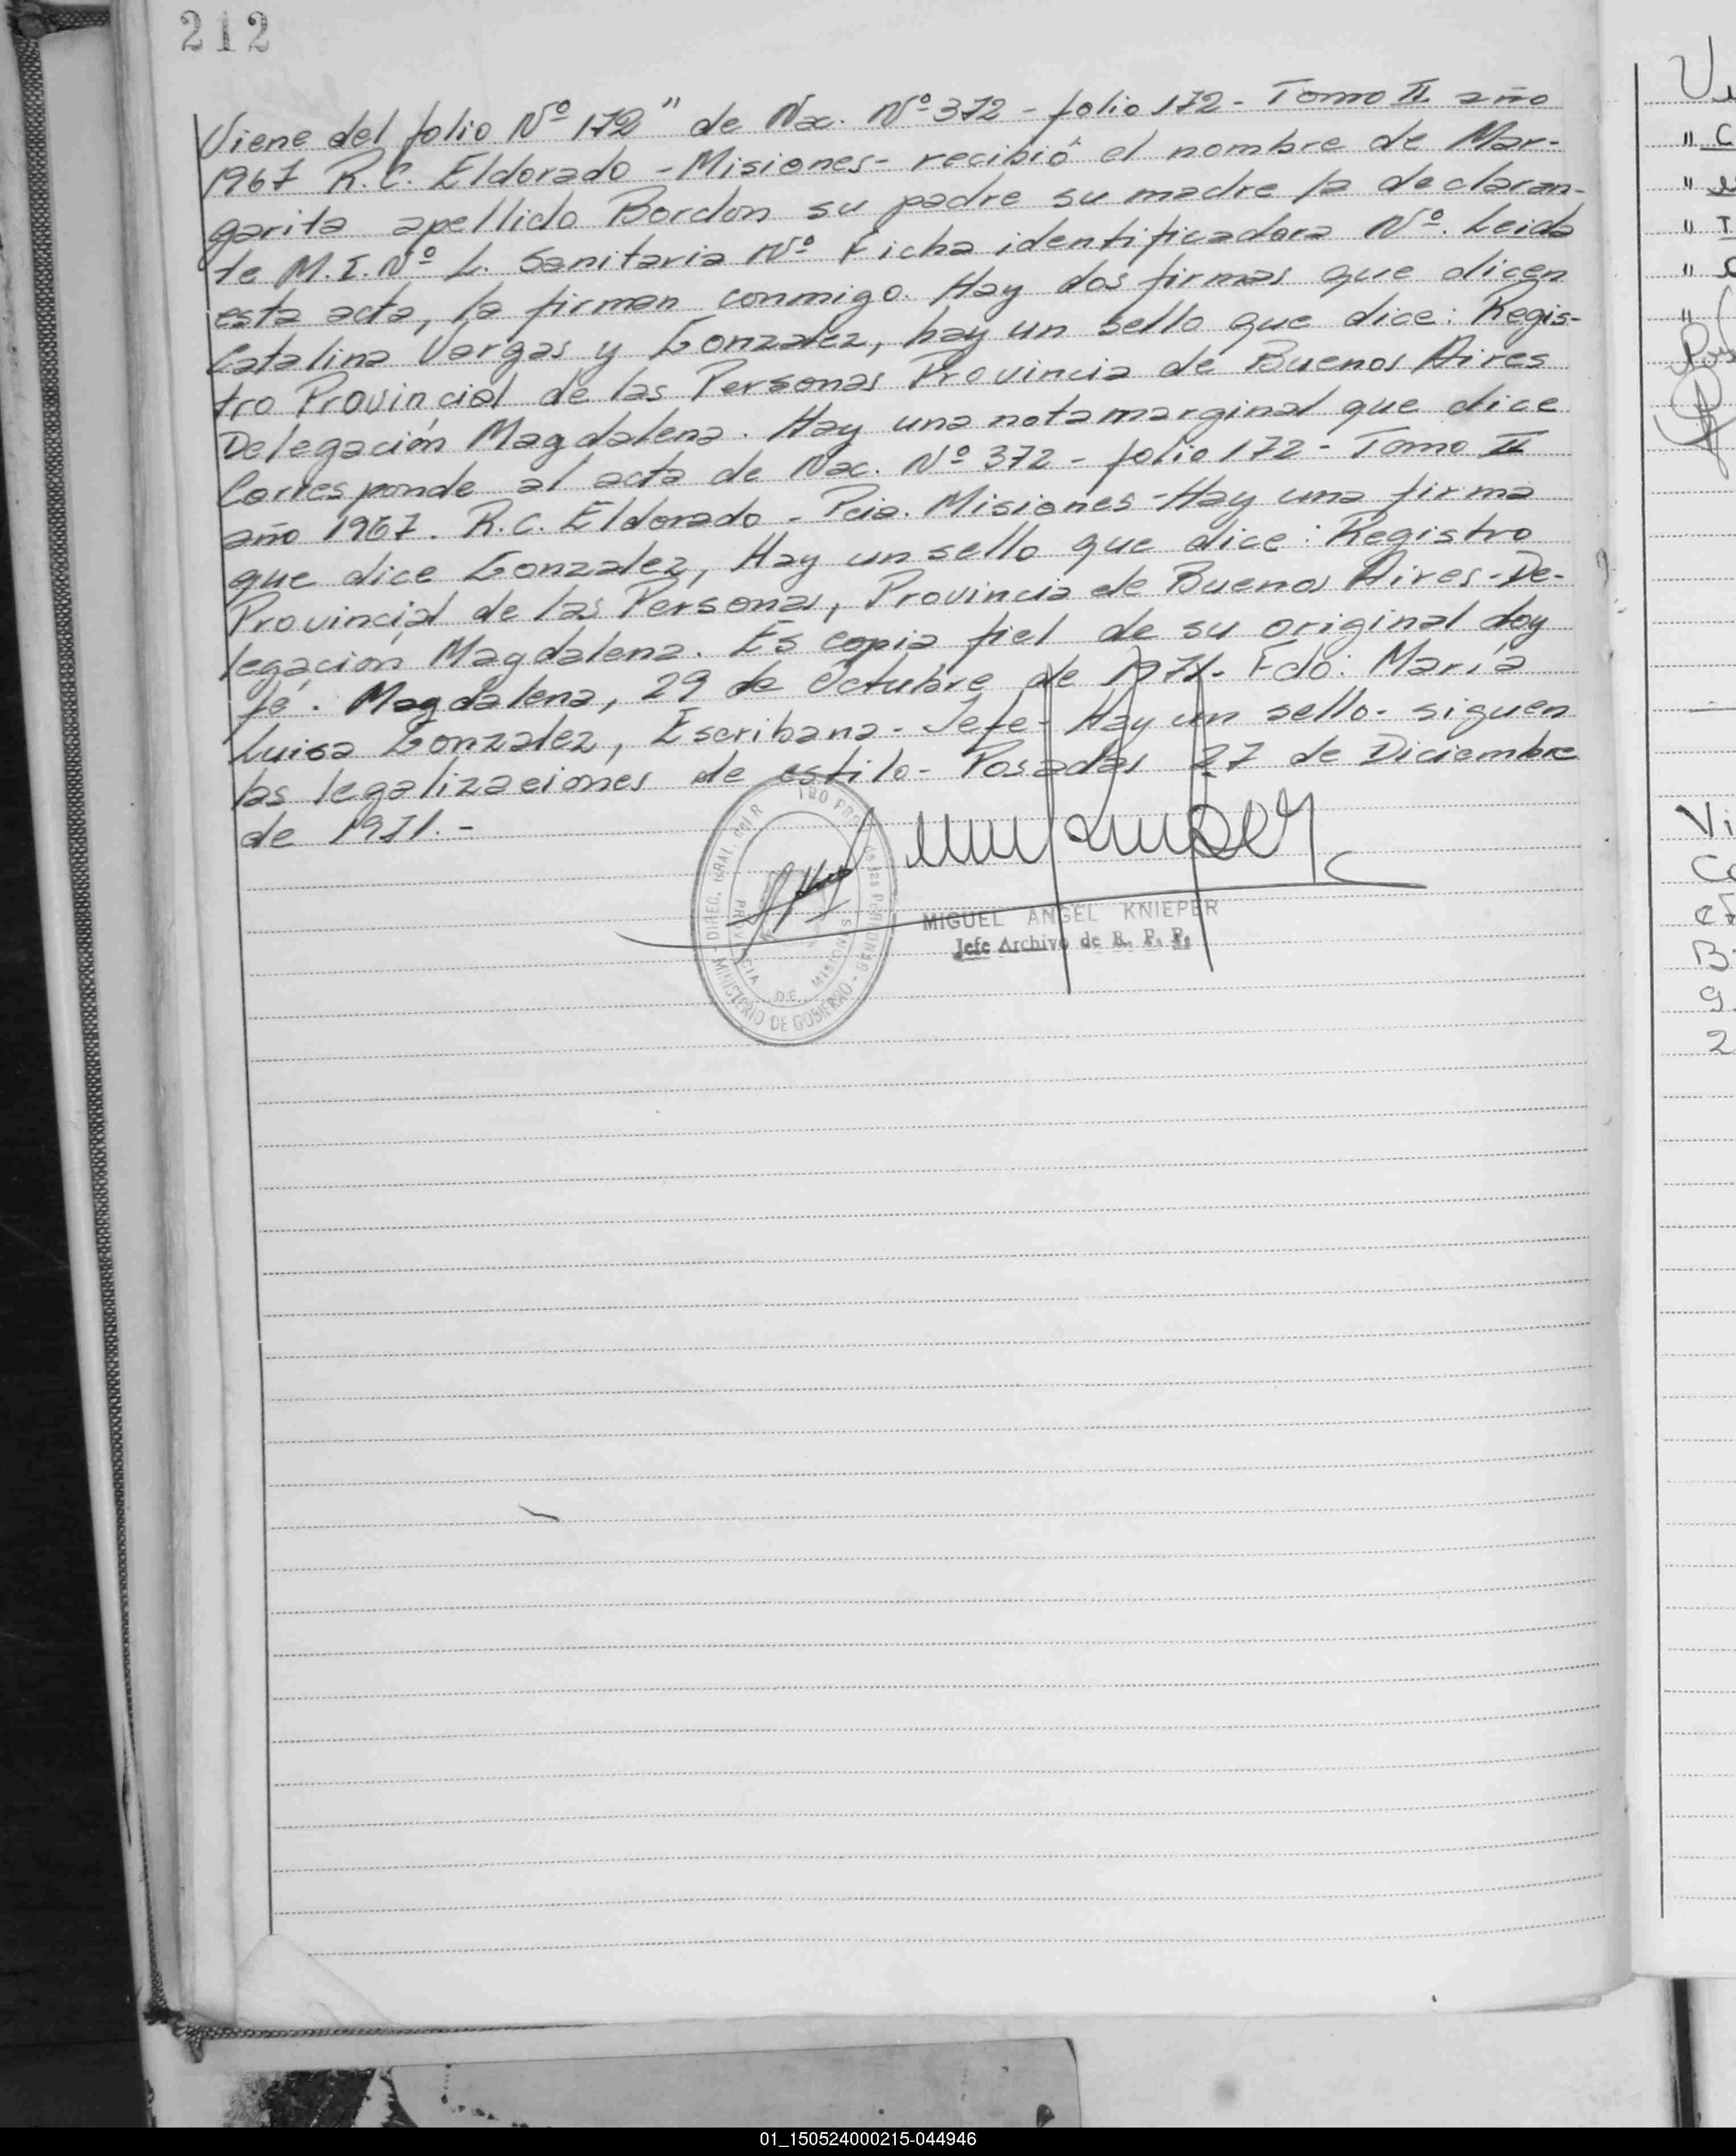 212
Viene del folio Nº 172" de Nac. Nº 372 - folio 172 - Tomo II año
1967 R.C. Eldorado - Misiones - recibió el nombre de Mar-
garita apellido Bordon su padre su madre la declaran-
te M.I. Nº L. Sanitaria Nº Ficha identificadora Nº. Leida
esta acta, la firman conmigo. Hay dos firmas que dicen
Catalina Vargas y Gonzalez, hay un sello que dice: Regis-
tro Provincial de las Personas Provincia de Buenos Aires
Delegación Magdalena. Hay una nota marginal que dice
Corresponde al acta de Nac. Nº 372 - folio 172 - Tomo II
año 1967. R.C. Eldorado - Pcia. Misiones - Hay una firma
que dice Gonzalez, Hay un sello que dice: Registro
Provincial de las Personas, Provincia de Buenos Aires - De-
legación Magdalena. Es copia fiel de su original doy
fé. Magdalena, 29 de Octubre de 1971. Fdo: María
Luisa Gonzalez, Escribana - Jefe - Hay un sello - siguen
las legalizaciones de estilo - Posadas 27 de Diciembre
de 1971. -
MINISTERIO DE GOBIERNO
PROVINCIA DE MISIONES
MIGUEL ANGEL KNIEPER
Jefe Archivo de R. P. P.
01_150524000215-044946